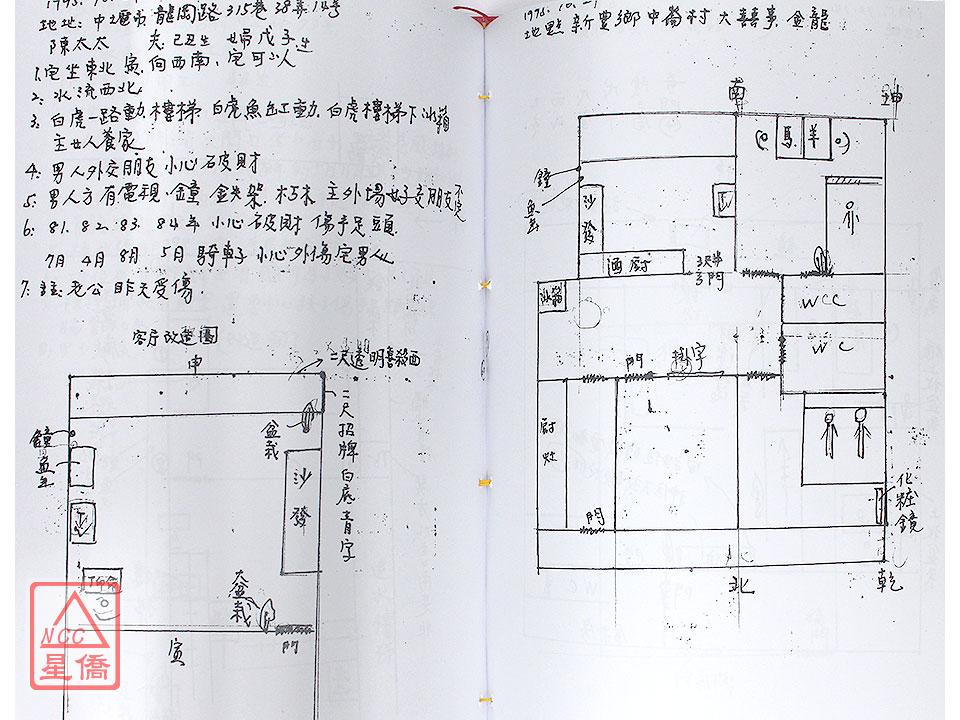 地址:中壢市龍岡路315巷38弄14号
陳太太 夫:己丑生 婦戊子生
1.宅坐東北寅.向西南.宅可以人
2:水流西北
3:白虎一路動樓梯 白虎魚缸動.白虎樓梯下冰箱
主女人養家
4:男人外交朋友小心破財
5:男人方有電視.鐘 鉄架.朽木 主外場
6:81.82.83.84年小心破財傷手足頭
7月4月8月5月騎車子小心外傷宅男人
7:註:老公昨天受傷.
客厅改造圖
申
二尺透明
二尺招牌白底青字
鐘
魚缸
盆栽
沙發
盆栽
寅
門
NCC
星僑
地點 新豐鄉中崙村大喜事金龍
南
坤
馬 羊
鐘
魚缸
沙發
酒廚
門
冰箱
WCC
WC
門
掛字
廚
灶
門
化粧鏡
北
乾